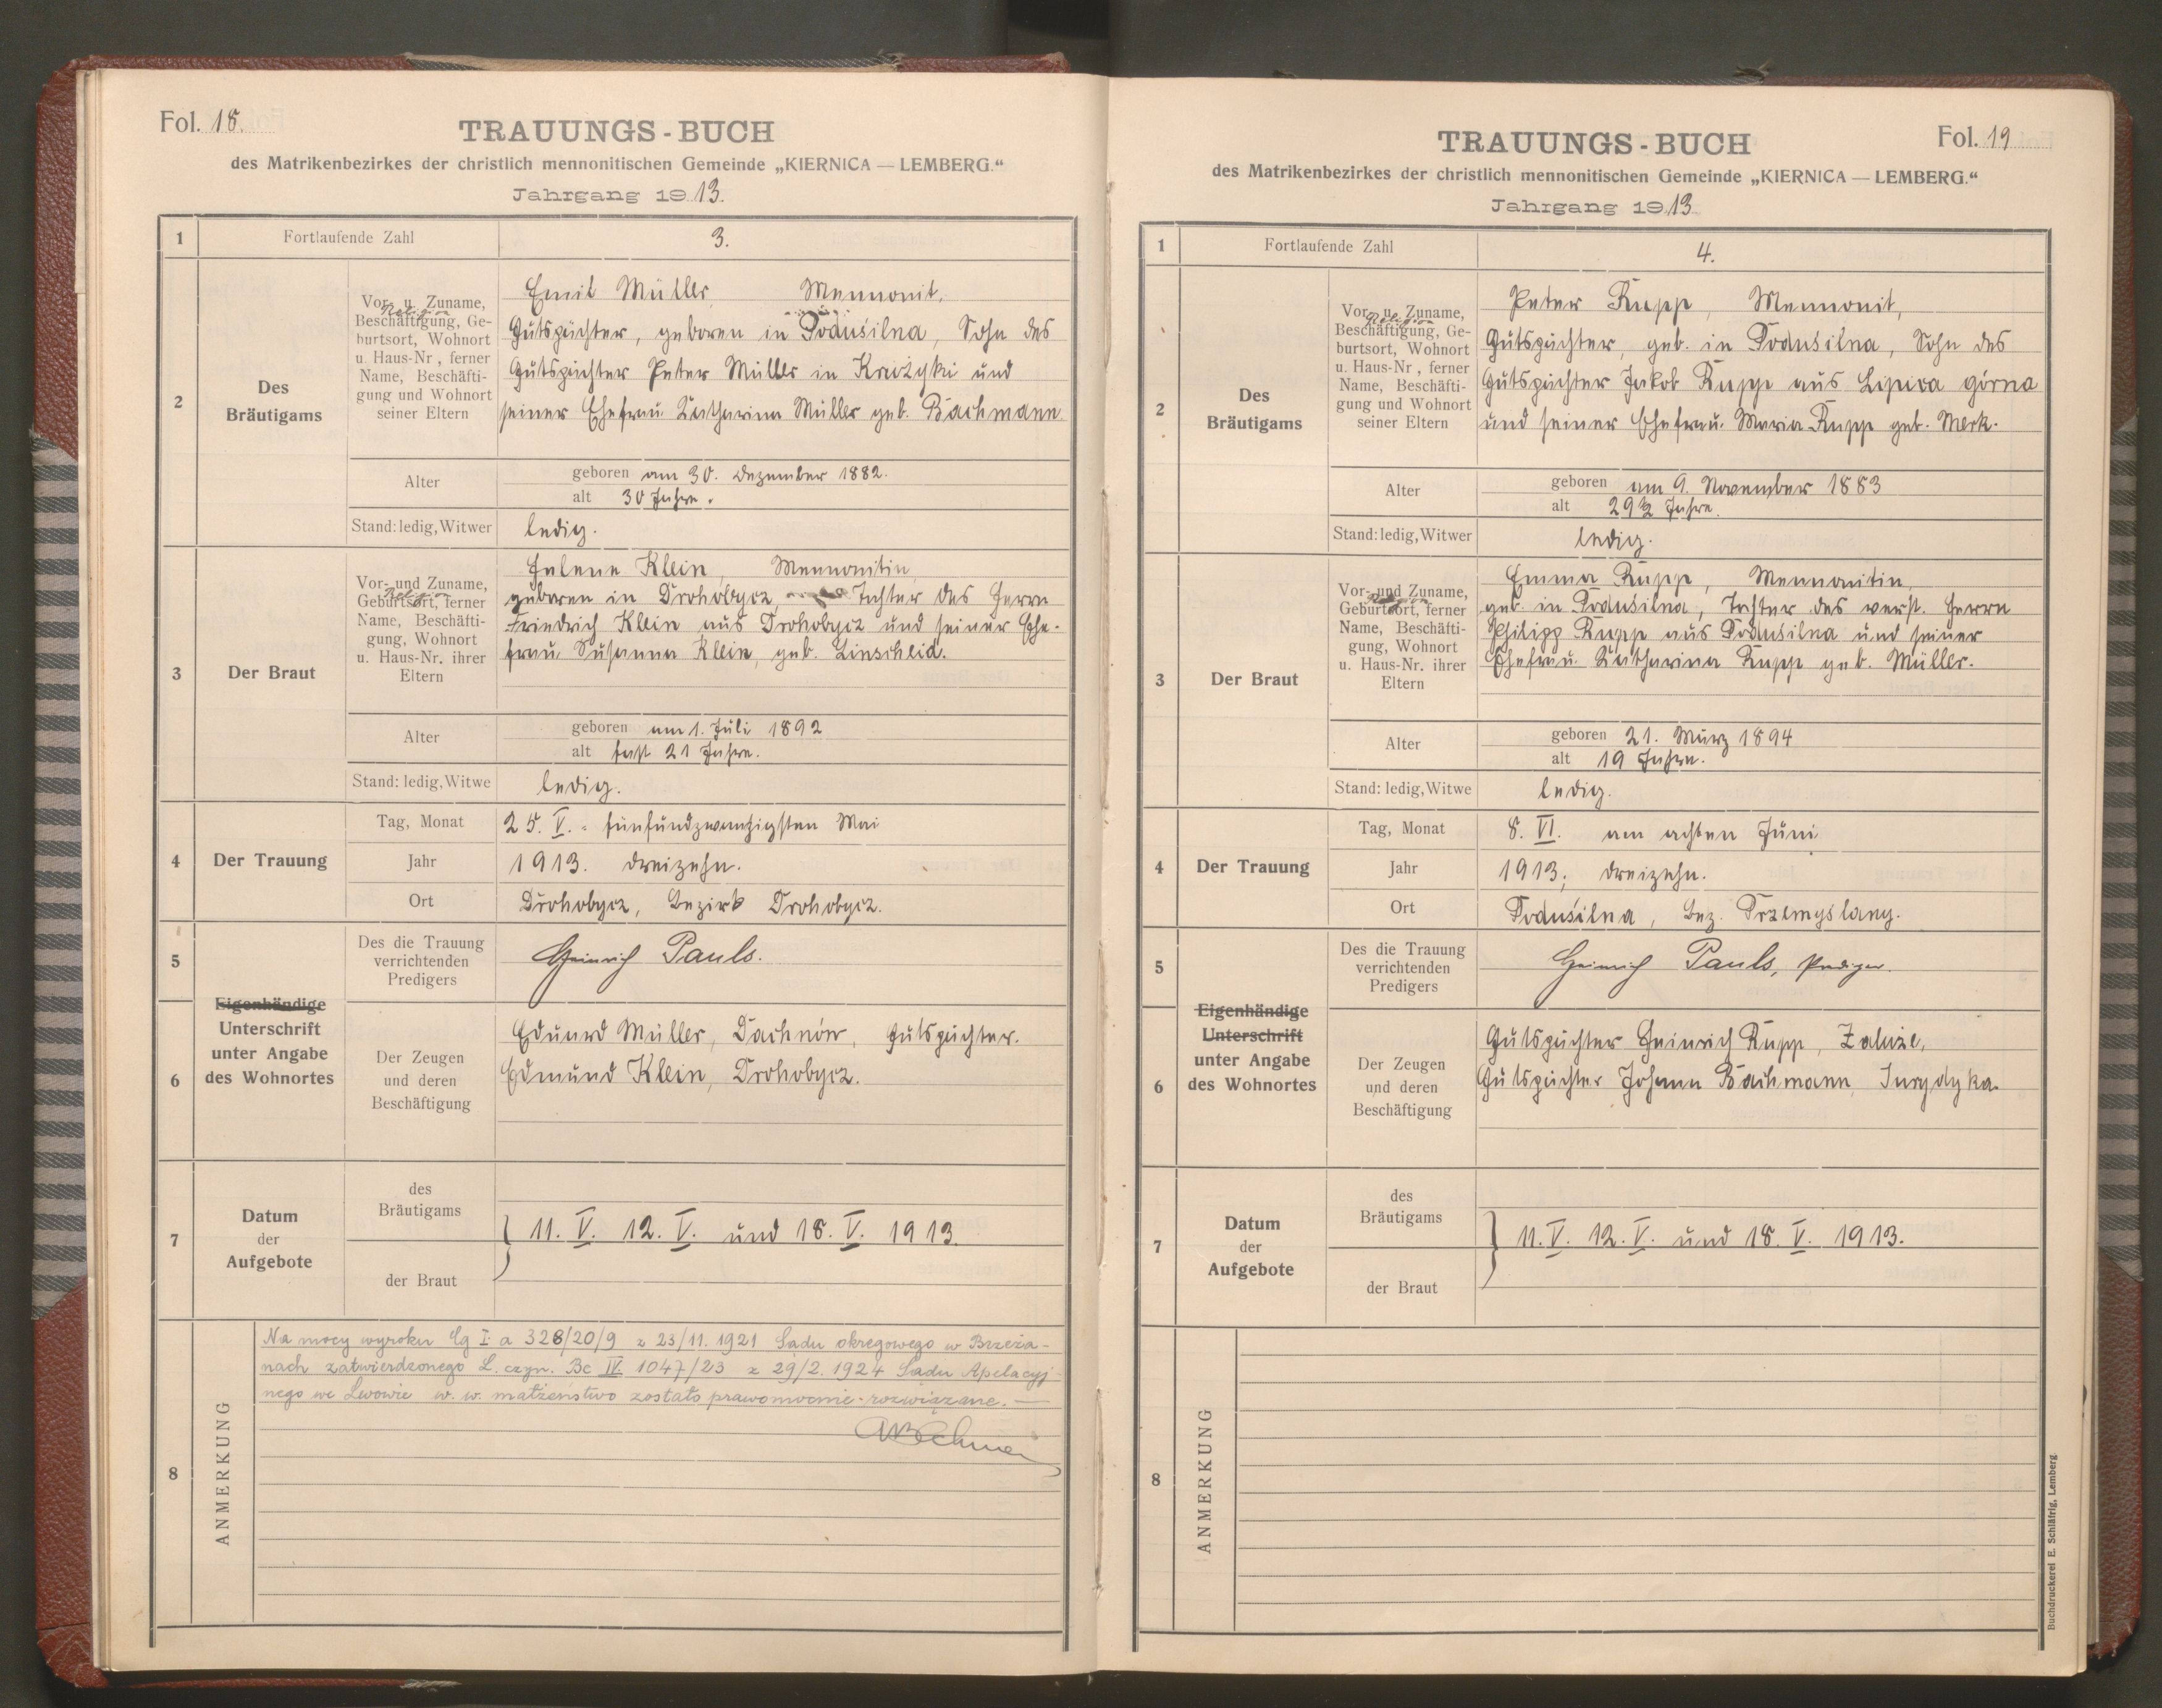 Fol. 18.
TRAUUNGS-BUCH
des Matrikenbezirkes der christlich mennonitischen Gemeinde „KIERNICA — LEMBERG.“
Jahrgang 1913.
1 Fortlaufende Zahl 3.
2 Des Bräutigams
Vor- u. Zuname,
Religion
Beschäftigung, Ge-
burtsort, Wohnort
u. Haus-Nr, ferner
Name, Beschäfti-
gung und Wohnort
seiner Eltern
Emil Müller, Mennonit,
Gutspächter, geboren in Podusilna, Sohn des
Gutspächter Peter Müller in Krzczycki und
seiner Ehefrau Katharina Müller geb. Bachmann
Alter
geboren am 30. Dezember 1882.
alt 30 Jahre.
Stand: ledig, Witwer ledig.
3 Der Braut
Vor- und Zuname,
Religion
Geburtsort, ferner
Name, Beschäfti-
gung, Wohnort
u. Haus-Nr. ihrer
Eltern
Helene Klein, Mennonitin
geboren in Drohobycz, Tochter des Herrn
Friedrich Klein aus Drohobycz und seiner Ehe-
frau Susanna Klein, geb. Linscheid.
Alter
geboren am 1. Juli 1892
alt fast 21 Jahre.
Stand: ledig, Witwe ledig.
4 Der Trauung
Tag, Monat 25. V. - fünfundzwanzigsten Mai
Jahr 1913. dreizehn.
Ort Drohobycz, Bezirk Drohobycz.
Eigenhändige
Unterschrift
unter Angabe
des Wohnortes
5 Des die Trauung
verrichtenden
Predigers
Heinrich Pauls.
6 Der Zeugen
und deren
Beschäftigung
Eduard Müller, Dachnów, Gutspächter.
Edmund Klein, Drohobycz.
7 Datum
der
Aufgebote
des
Bräutigams
der Braut
11. V. 12. V. und 18. V. 1913.
8 ANMERKUNG
Na mocy wyroku Cg I a 328/20/9 z 23/11. 1921 Sądu okręgowego w Brzeża-
nach zatwierdzonego L. czyn. Bc IV. 1047/23 z 29/2. 1924 Sądu Apelacyj-
nego we Lwowie w. w. małżeństwo zostało prawomocnie rozwiązane. —
Fol. 19
TRAUUNGS-BUCH
des Matrikenbezirkes der christlich mennonitischen Gemeinde „KIERNICA — LEMBERG.“
Jahrgang 1913
1 Fortlaufende Zahl 4.
2 Des Bräutigams
Vor- u. Zuname,
Religion
Beschäftigung, Ge-
burtsort, Wohnort
u. Haus-Nr, ferner
Name, Beschäfti-
gung und Wohnort
seiner Eltern
Peter Rupp, Mennonit,
Gutspächter, geb. in Podusilna, Sohn des
Gutspächter Jakob Rupp aus Lipica górna
und seiner Ehefrau Maria Rupp geb. Merk.
Alter
geboren am 9. November 1883
alt 29½ Jahre.
Stand: ledig, Witwer ledig.
3 Der Braut
Vor- und Zuname,
Religion
Geburtsort, ferner
Name, Beschäfti-
gung, Wohnort
u. Haus-Nr. ihrer
Eltern
Emma Rupp, Mennonitin,
geb. in Podusilna, Tochter des verst. Herrn
Philipp Rupp aus Podusilna und seiner
Ehefrau Katharina Rupp geb. Müller.
Alter
geboren 21. März 1894
alt 19 Jahre.
Stand: ledig, Witwe ledig.
4 Der Trauung
Tag, Monat 8. VI. am achten Juni
Jahr 1913; dreizehn.
Ort Podusilna, Bez. Przemyslany.
Eigenhändige
Unterschrift
unter Angabe
des Wohnortes
5 Des die Trauung
verrichtenden
Predigers
Heinrich Pauls, Prediger.
6 Der Zeugen
und deren
Beschäftigung
Gutspächter Heinrich Rupp, Zaluże,
Gutspächter Johann Bachmann, Jurydyka.
7 Datum
der
Aufgebote
des
Bräutigams
der Braut
11. V. 12. V. und 18. V. 1913.
8 ANMERKUNG
Buchdruckerei E. Schläfrig, Lemberg